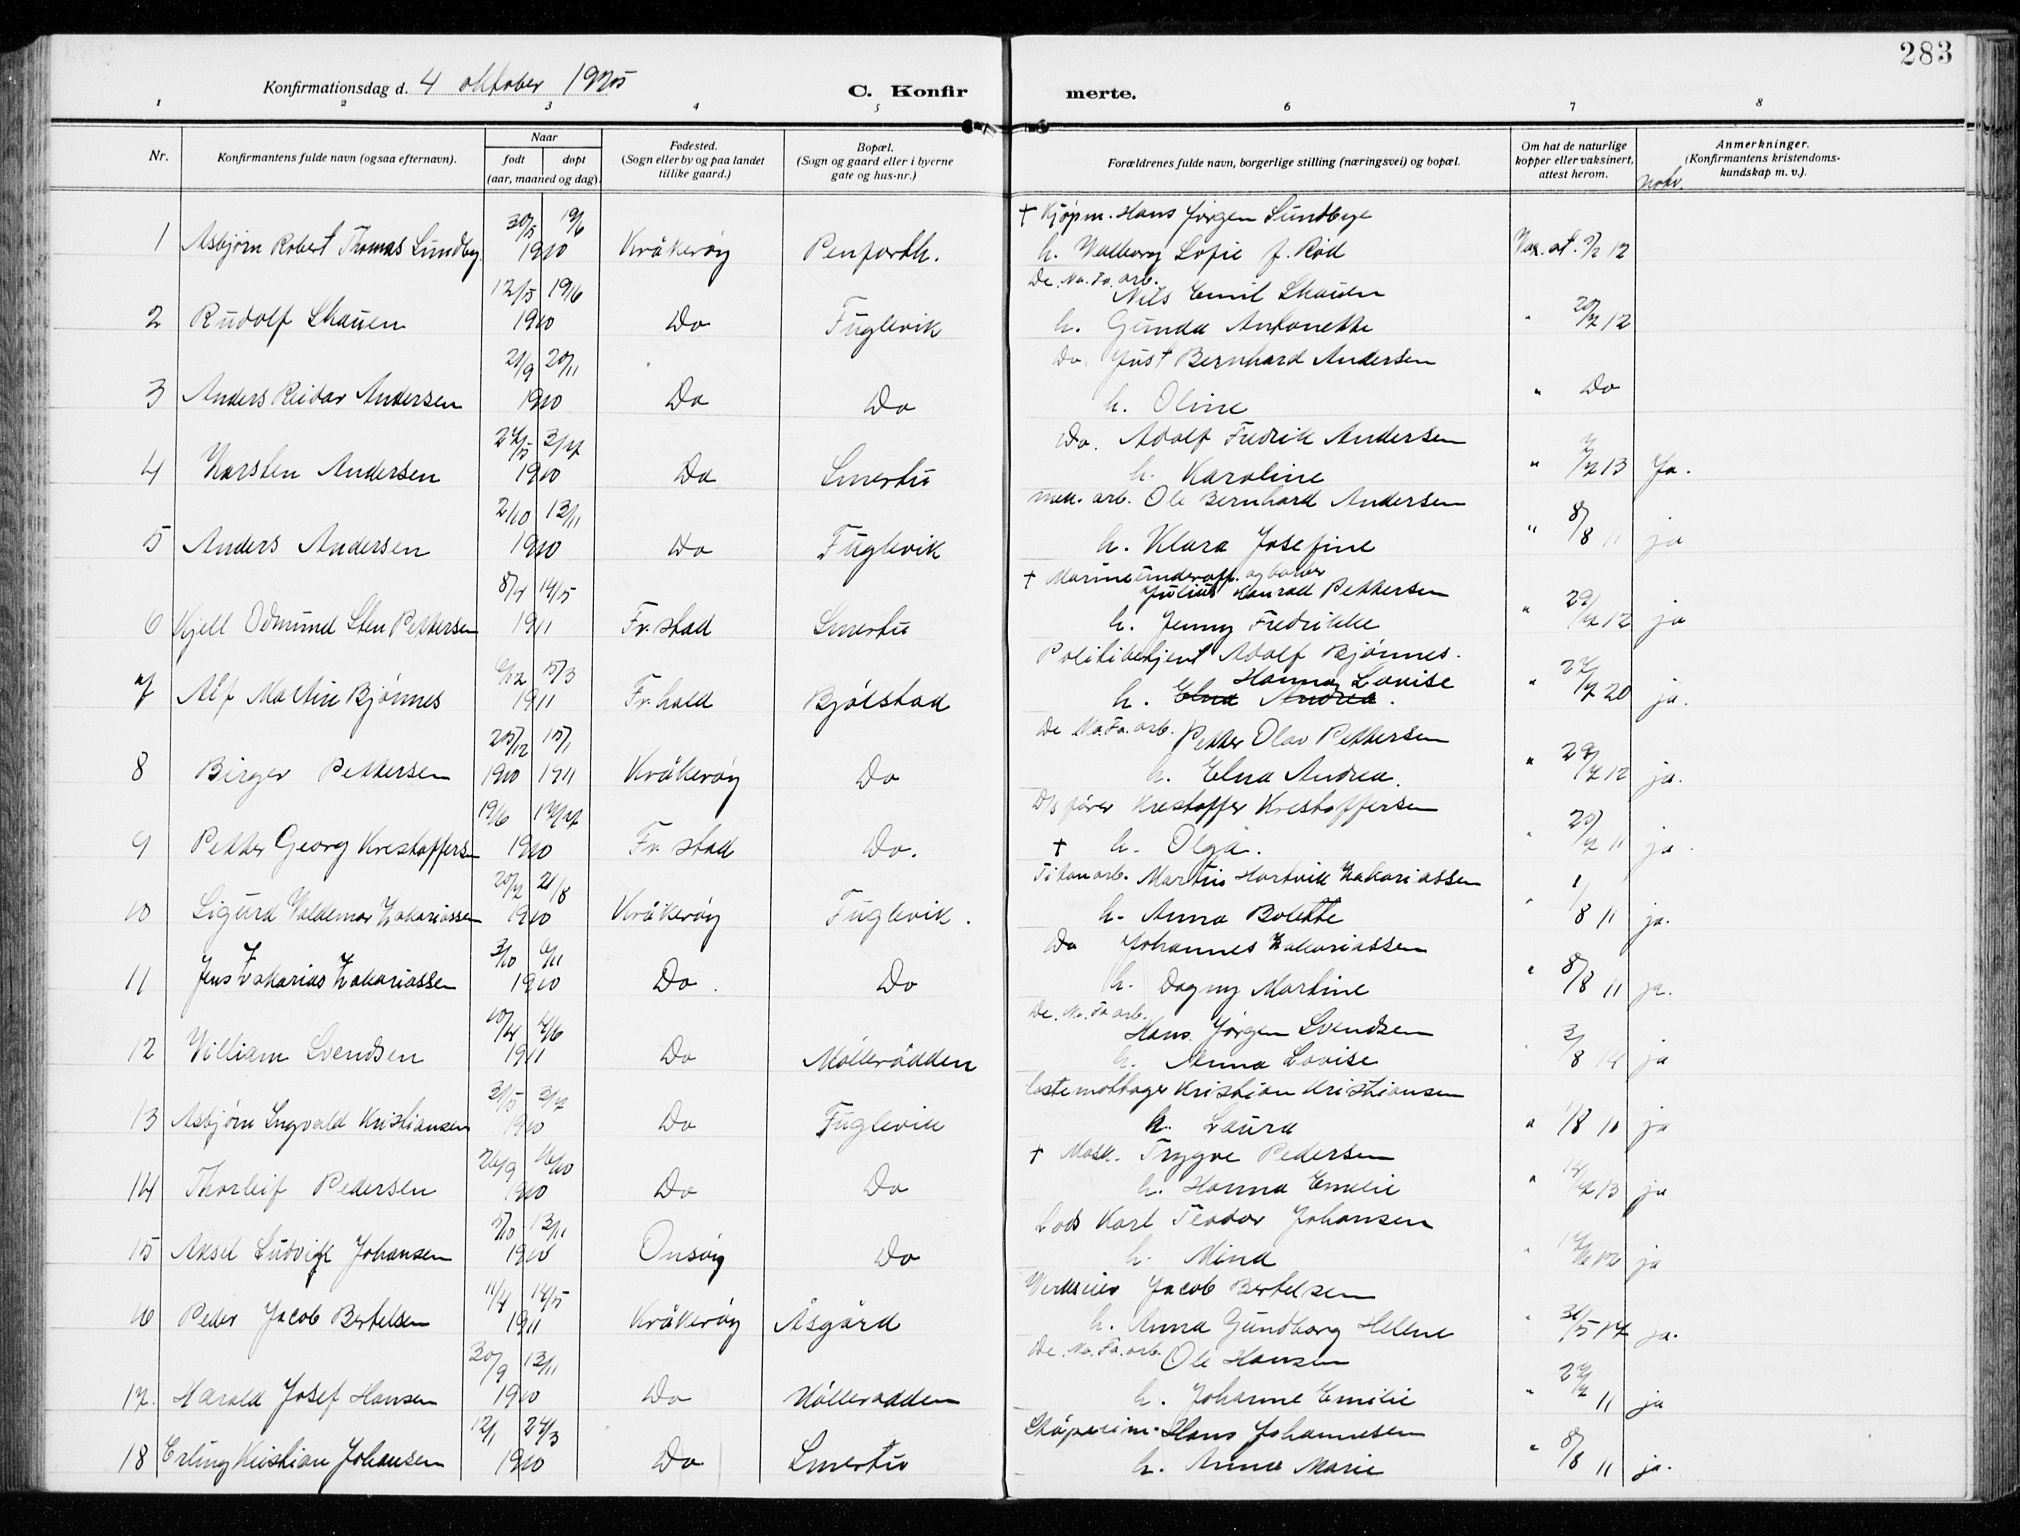 283
Konfirmationsdag d. 4 oktober 1925
C. Konfirmerte.
1 2 3 4 5 6 7 8
Nr.
Konfirmantens fulde navn (ogsaa efternavn).
Naar
født
døpt
(aar, maaned og dag).
Fødested.
(Sogn eller by og paa landet
tillike gaard.)
Bopæl.
(Sogn og gaard eller i byerne
gate og hus-nr.)
Forældrenes fulde navn, borgerlige stilling (næringsvei) og bopæl.
Om hat de naturlige
kopper eller vaksinert,
attest herom.
Anmerkninger.
(Konfirmantens kristendoms-
kundskap m. v.).
30/5 19/6 † Kjøpm. Hans Jørgen Lundbye
1 Asbjørn Robert Thomas Lundby 1910 Kråkerøy Penforth. h. Valborg Sofie f. Rød Vax. at. 12
12/5 19/6 De. No. Fa. arb. Nils Emil Skauen
2 Rudolf Skauen 1910 Do Fuglevik h. Gunda Antonette " 12
21/9 20/11 Do Just Bernhard Andersen
3 Anders Reidar Andersen 1910 Do Do h. Oline " Do
27/5 3/7 Do. Adolf Fredrik Andersen
4 Karsten Andersen 1910 Do Smertu h. Karoline " 13 Ja.
2/10 13/11 mek. arb. Ole Bernhard Andersen
5 Anders Andersen 1910 Do Fuglevik h. Klara Josefine " 8/8 11 ja
8/4 14/5 † Marineunderoff. og barber
Julius Konrad Pettersen
6 Kjell Odmund Sten Pettersen 1911 Fr.stad Smertu h. Jenny Fredrikke " 29/7 12 ja
5/3 Politibetjent Adolf Bjønnes.
Hanna Lovise
7 Alf Martin Bjønnes 1911 Fr.hald Bjølstad h. Elna Andrea. " 27/7 20 ja.
25/12 15/1 De. No. Fa. arb. Petter Olav Pettersen
8 Birger Pettersen 1910 1911 Kråkerøy Do h. Elna Andrea. " 29/7 12 ja.
19/6 17/7 D/s fører Krestoffer Krestoffersen
9 Petter Georg Krestoffersen 1910 Fr. stad Do. † h. Olga. " 25/7 11 ja.
20/7 21/8 Titanarb. Martin Hartvik Zakariassen
10 Sigurd Valdemar Zakariassen 1910 Kråkerøy Fuglevik. h. Anna Bolette " 1/8 11 ja.
3/10 6/11 Do Johannes Zakariassen
11 Jens Zakarias Zakariassen 1910 Do. Do h. Dagny Martine " 8/8 11 ja.
10/4 4/6 De. No. Fa. arb. Hans Jørgen Svendsen
12 William Svendsen 1911 Do Møllerodden h. Anna Lovise " 3/8 14 ja
31/5 3/7 Lostemottager Kristian Kristiansen
13 Asbjørn Ingvald Kristiansen 1910 Do Fuglevik h. Laura " 1/8 10 ja
26/9 16/10 † Mask. Trygve Pedersen
14 Thorleif Pedersen 1910 Do Do h. Hanna Emilie " 14/7 13 ja
5/10 13/11 Lods Karl Teodor Johansen
15 Aksel Ludvig Johansen 1910 Onsøy Do h. Mina " ja
11/4 14/5 Verkseier Jacob Bertelsen
16 Peder Jacob Bertelsen 1911 Kråkerøy Åsgård h. Anna Gundborg Helene " 31/5 17 ja.
30/9 13/11 De. No. Fa. arb. Ole Hansen
17. Harald Josef Hansen 1910 Do Møllerodden h. Johanne Emilie " 11 ja
12/1 27/3 Skåperim. Hans Johannesen
18 Erling Kristian Johansen 1910 Do Smertu h. Anna Marie " 8/8 11 ja.